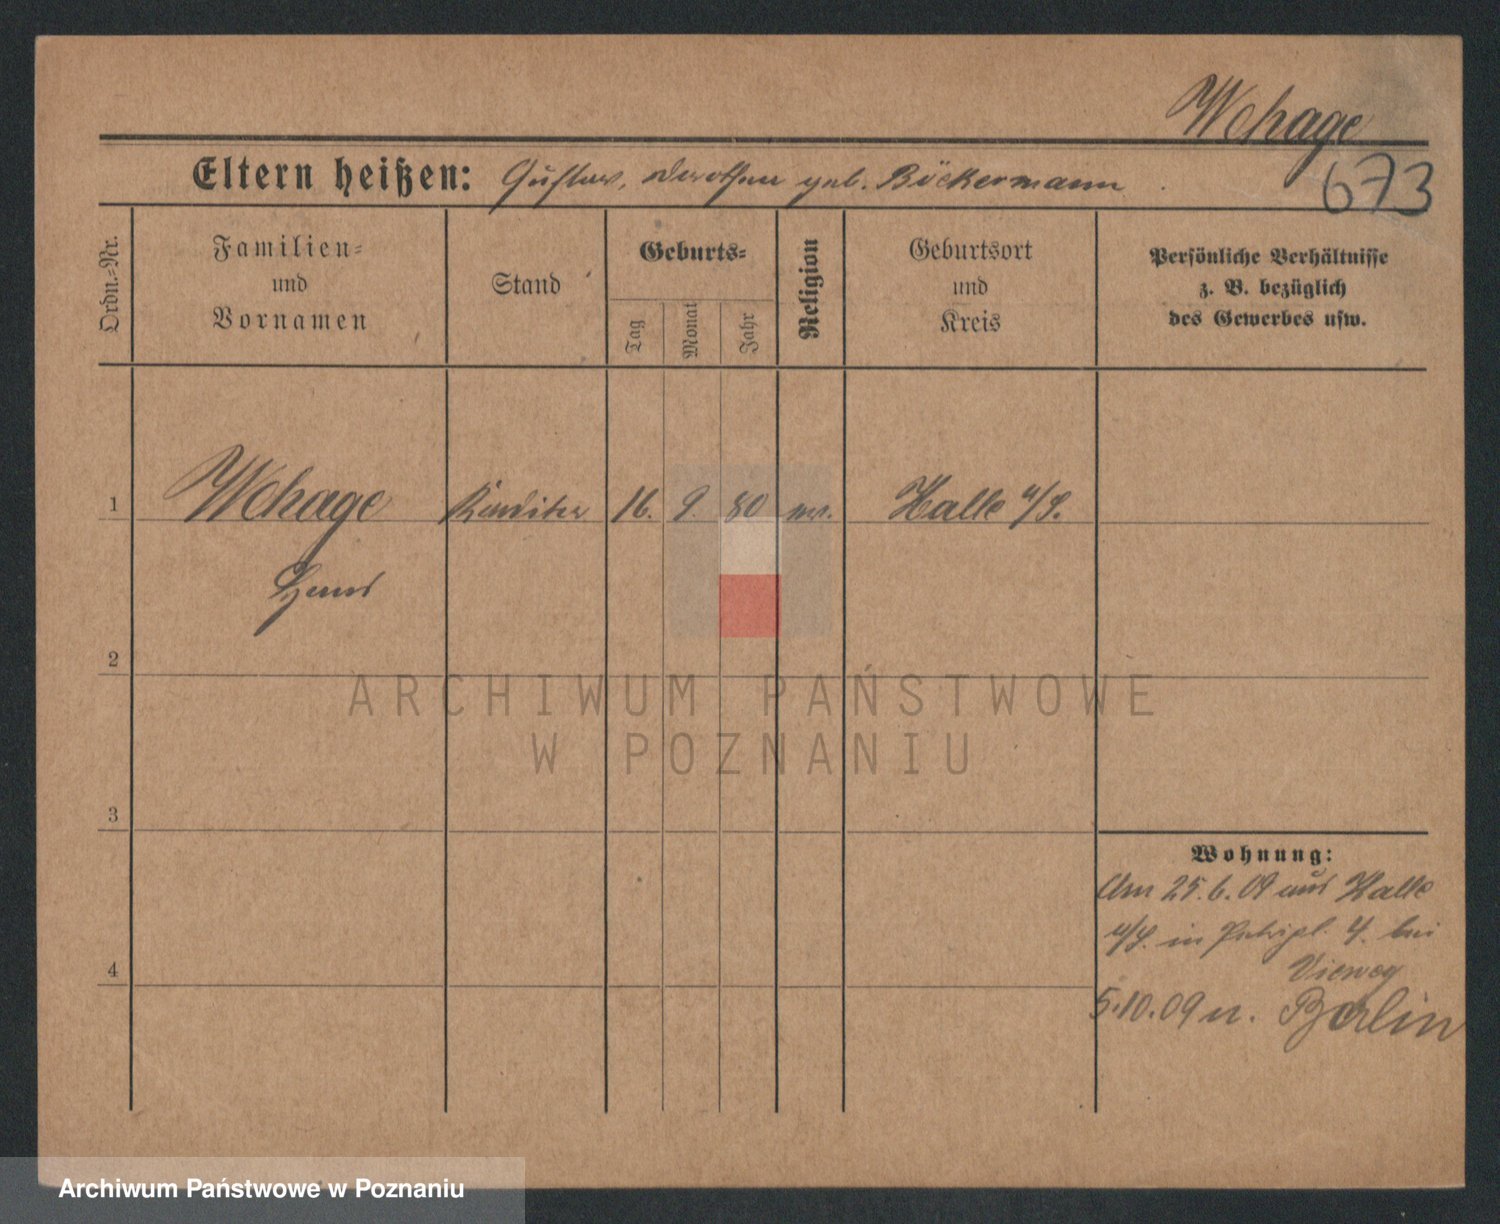 Wehage
673
Eltern heißen: Gustav, Dorothea geb. Böckermann
Ordn.-Nr.
Familien-
und
Vornamen
Stand
Geburts-
Tag
Monat
Jahr
Religion
Geburtsort
und
Kreis
Persönliche Verhältnisse
z. B. bezüglich
des Gewerbes usw.
1
Wehage
Konditor
16.
9.
80
ev.
Halle a/S.
Hans
2
ARCHIWUM PAŃSTWOWE
W POZNANIU
3
Wohnung:
Am 25.6.09 aus Halle
a/S. in Petripl. 4. bei
Vieweg
4
5.10.09 n. Berlin
Archiwum Państwowe w Poznaniu